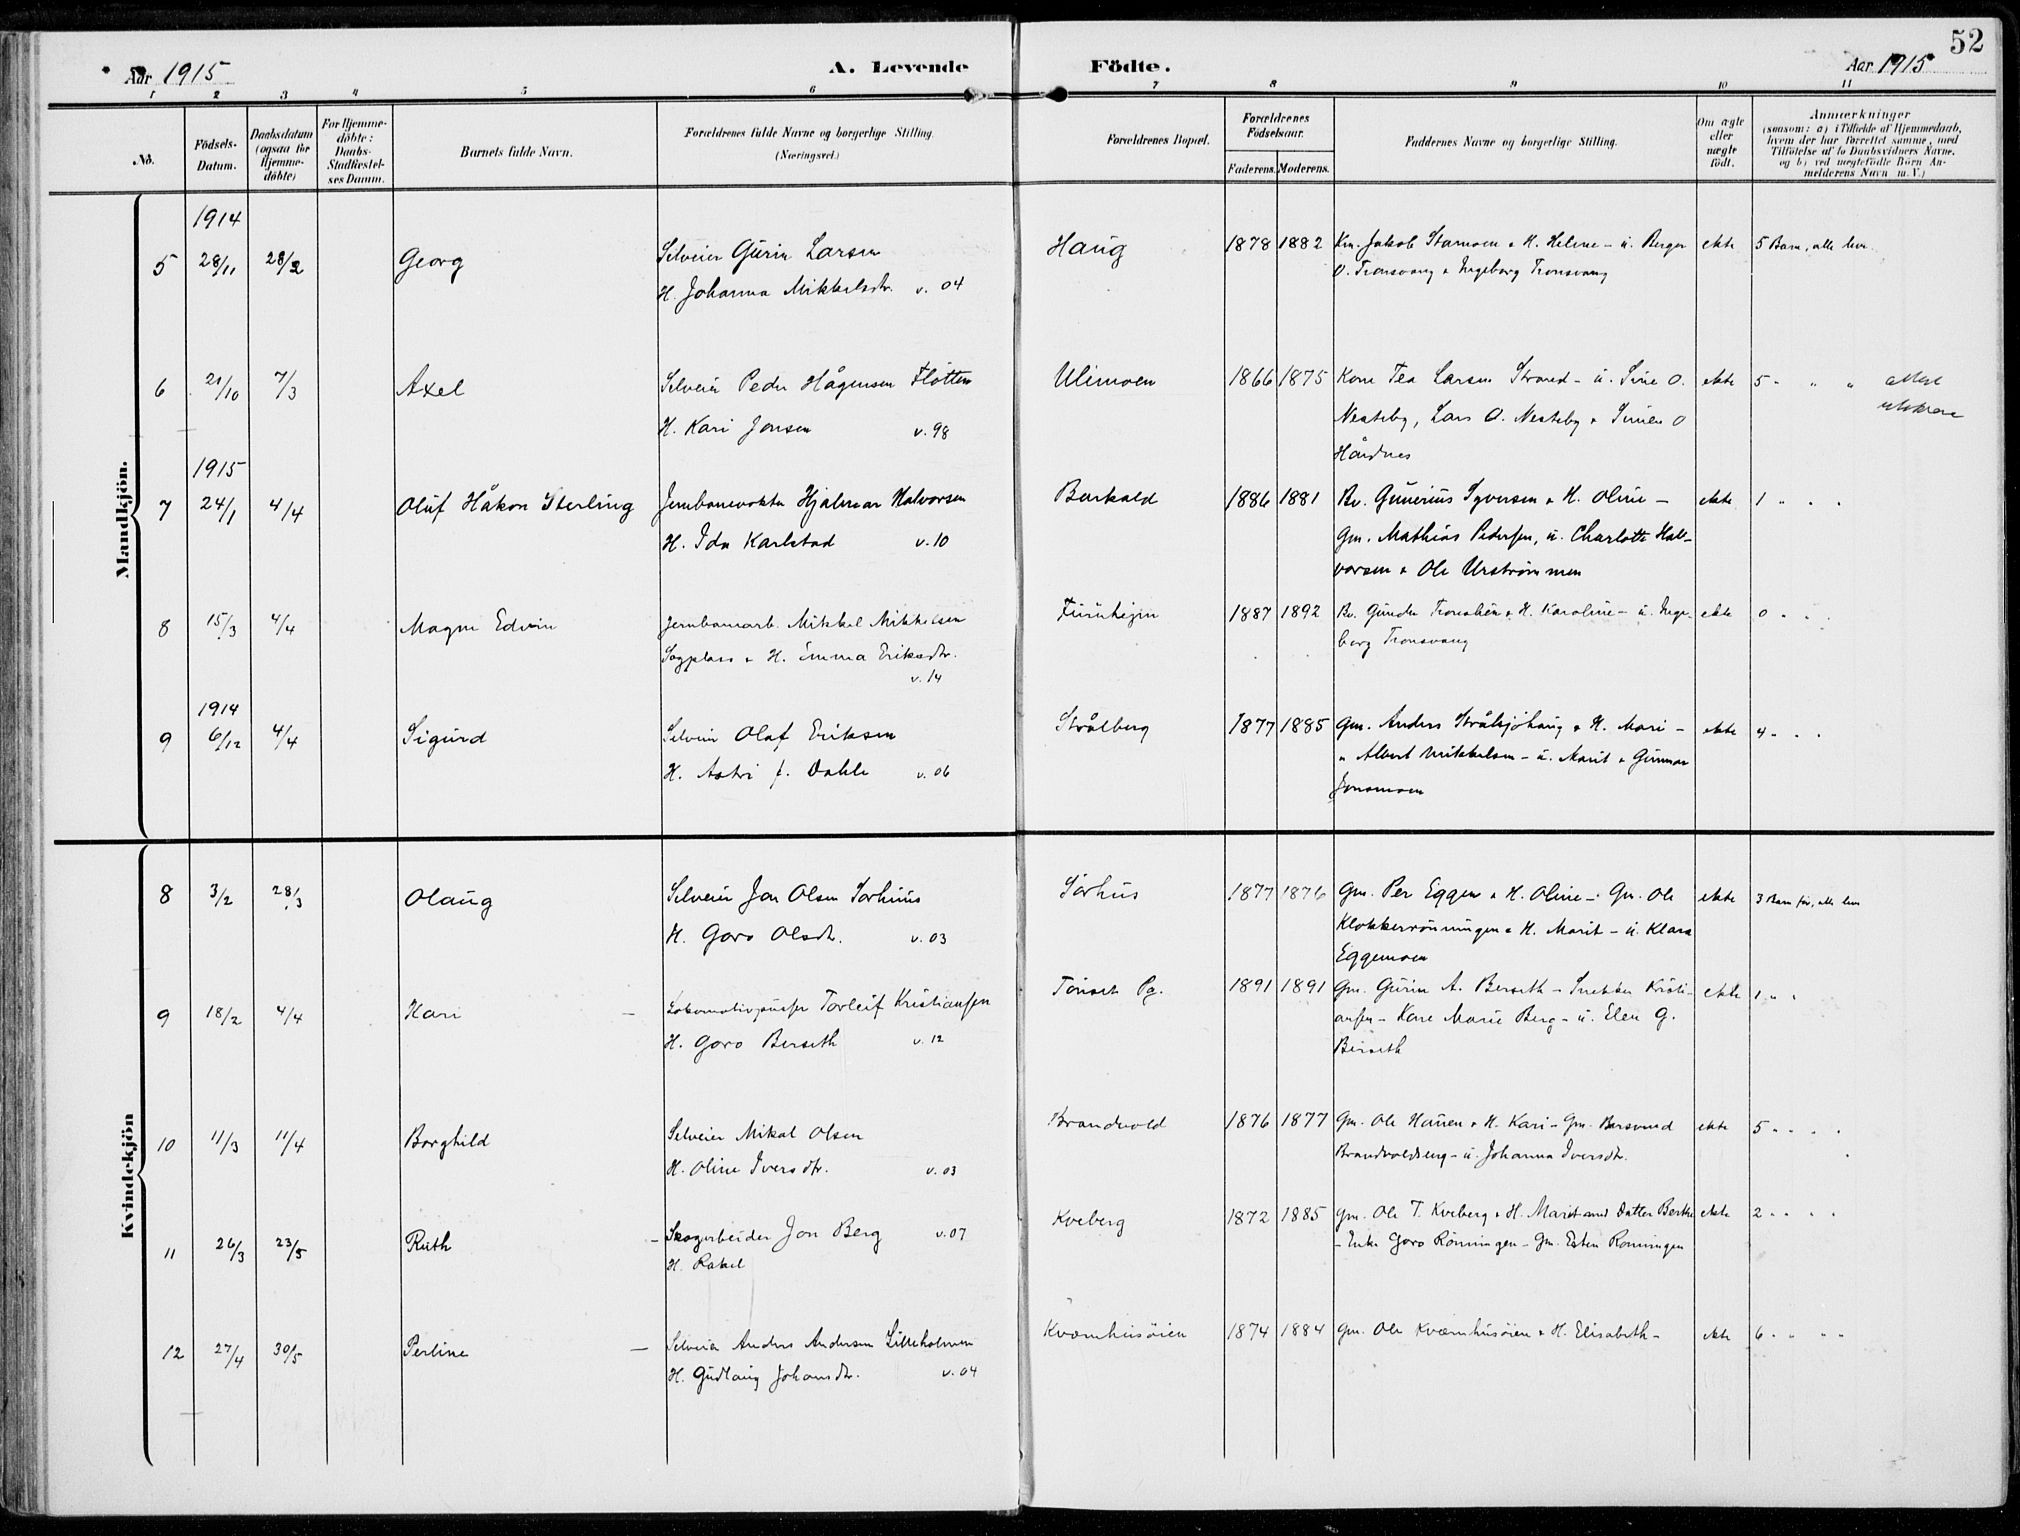 52
Aar 1915
A. Levende Födte.
Aar 1915
1 2 3 4 5 6 7 8 9 10 11
No.
Födsels-Datum.
Daabsdatum (ogsaa for Hjemme-döbte)
For Hjemme-döbte: Daabs-Stadfæstel-ses Datum.
Barnets fulde Navn.
Forældrenes fulde Navne og borgerlige Stilling.
(Næringsvei.)
Forældrenes Bopæl.
Forældrenes Födselsaar.
Faderens. Moderens.
Faddernes Navne og borgerlige Stilling.
Om ægte eller uægte födt.
Anmærkninger
(saasom: a) i Tilfælde af Hjemmedaab,
hvem der har forrettet samme, med
Tilföielse af to Daabsvidners Navne.
og b) ved uægtefödte Börn An-
melderens Navn m. V.)
Mandkjön.
1914
5 28/11 28/2 Georg Selveier Gurin Larsen Haug 1878 1882 Km. Jakob Stamoen & H. Helene - u. Berger ekte 5 Barn, alle lev.
H. Johanna Mikkelsdtr. v. 04 O. Tronsvang & Ingeborg Tronsvang
6 21/10 7/3 Axel Selveier Peder Hågensen Flotten Ulimoen 1866 1875 Kone Tea Larsen Strand - u. Sine O. ekte 5 " " "
H. Kari Jonsen v. 98 Nesteby, Lars O. Nesteby & Simen O
1915
7 24/1 4/4 Oluf Håkon Sterling Jernbanevokter Hjalmar Halvorsen Barkald 1886 1881 Bv. Gunerius Syversen & H. Oline - ekte 1 " " "
H. Ida Karlstad v. 10 Gm. Mathias Pedersen, u. Charlotte Hal-
vorsen & Ole Urstrømmen
8 15/3 4/4 Magne Edvin Jernbanearb. Mikkel Mikkelsen Furuheim 1887 1892 Bv. Gunder & H. Karoline - u. Inge- ekte 0 " "
Sagplass & H. Emma Eriksdtr. borg Tronsvang
v. 14
1914
9 6/12 4/4 Sigurd Selveier Olaf Eriksen Strålberg 1877 1885 Gm. Anders Strålsjöhaug & H. Mari - ekte 4 " " "
H. Astri f. Dahle v. 06 " Albert Mikkelsen - u. Marit & Gunnar
Jonsmoen
Kvindekjön
8 3/2 28/3 Olaug Selveier Jon Olsen Sørhuus Sørhus 1877 1876 Gm. Per Eggen & H. Oline - Gm. Ole ekte 3 Barn før, alle lev
H. Goro Olsdtr. v. 03 Klokkerrönningen & H. Marit - u. Klara
Eggemoen
9 18/2 4/4 Kari - Lokomotivpusser Torleif Kristiansen Tönset Pg. 1891 1891 Gm. Gurin A. Berseth - Snekker Kristi- ekte 1 " "
H. Goro Berseth v. 12 ansen - Kone Marie Berg - u. Elen G.
Berseth
10 11/3 11/4 Borghild Selveier Mikal Olsen Brandvold 1876 1877 Gm. Ole Hauen & H. Kari - Gm. Bersvend ekte 5 " " " "
H. Oline Iversdtr. v. 03 Brandvoldseng - u. Johanna Iversdtr.
11 26/3 23/5 Ruth - Skogarbeider Jon Berg v. 07 Kveberg 1872 1885 Gm. Ole T. Kveberg & H. Marit med Datter Berthe ekte 2 " " " "
H. Rakel - Enke Goro Rönningen - Gm. Esten Ronningen
12 27/4 30/5 Perline - Selveier Anders Andersen Lilleholmen Kværnhusöien 1874 1884 Gm. Ole Kværnhusöien & H. Elisabeth - ekte 6 " " " "
H. Gudlaug Johansdtr. v. 04